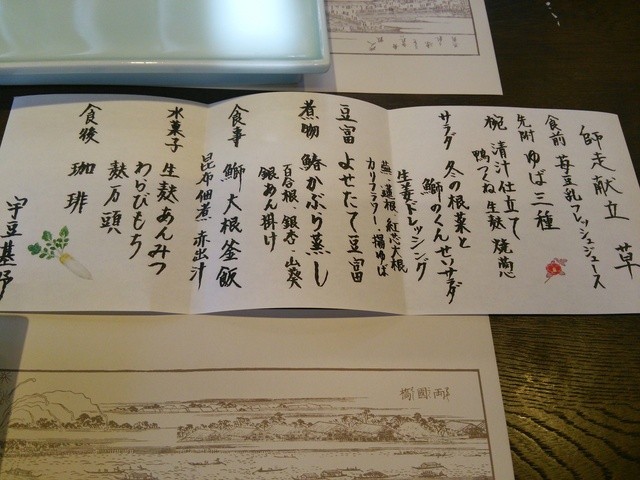 師走献立 草
食前 苺豆乳フレッシュジュース
先附 ゆば三種
椀 清汁仕立て
鴨つくね 生麩 焼葱
サラダ 冬の根菜と
鰤のくんせいサラダ
生姜ドレッシング
蕪、蓮根、紅芯大根
カリフラワー、揚ゆば
豆富 よせたて豆富
煮物 鰆かぶり蒸し
百合根、銀杏、山葵
銀あん掛け
食事 鰤大根釜飯
昆布佃煮 赤出汁
水菓子 生麩あんみつ
わらびもち
麩万頭
食後 珈琲
宇豆基野
両國橋